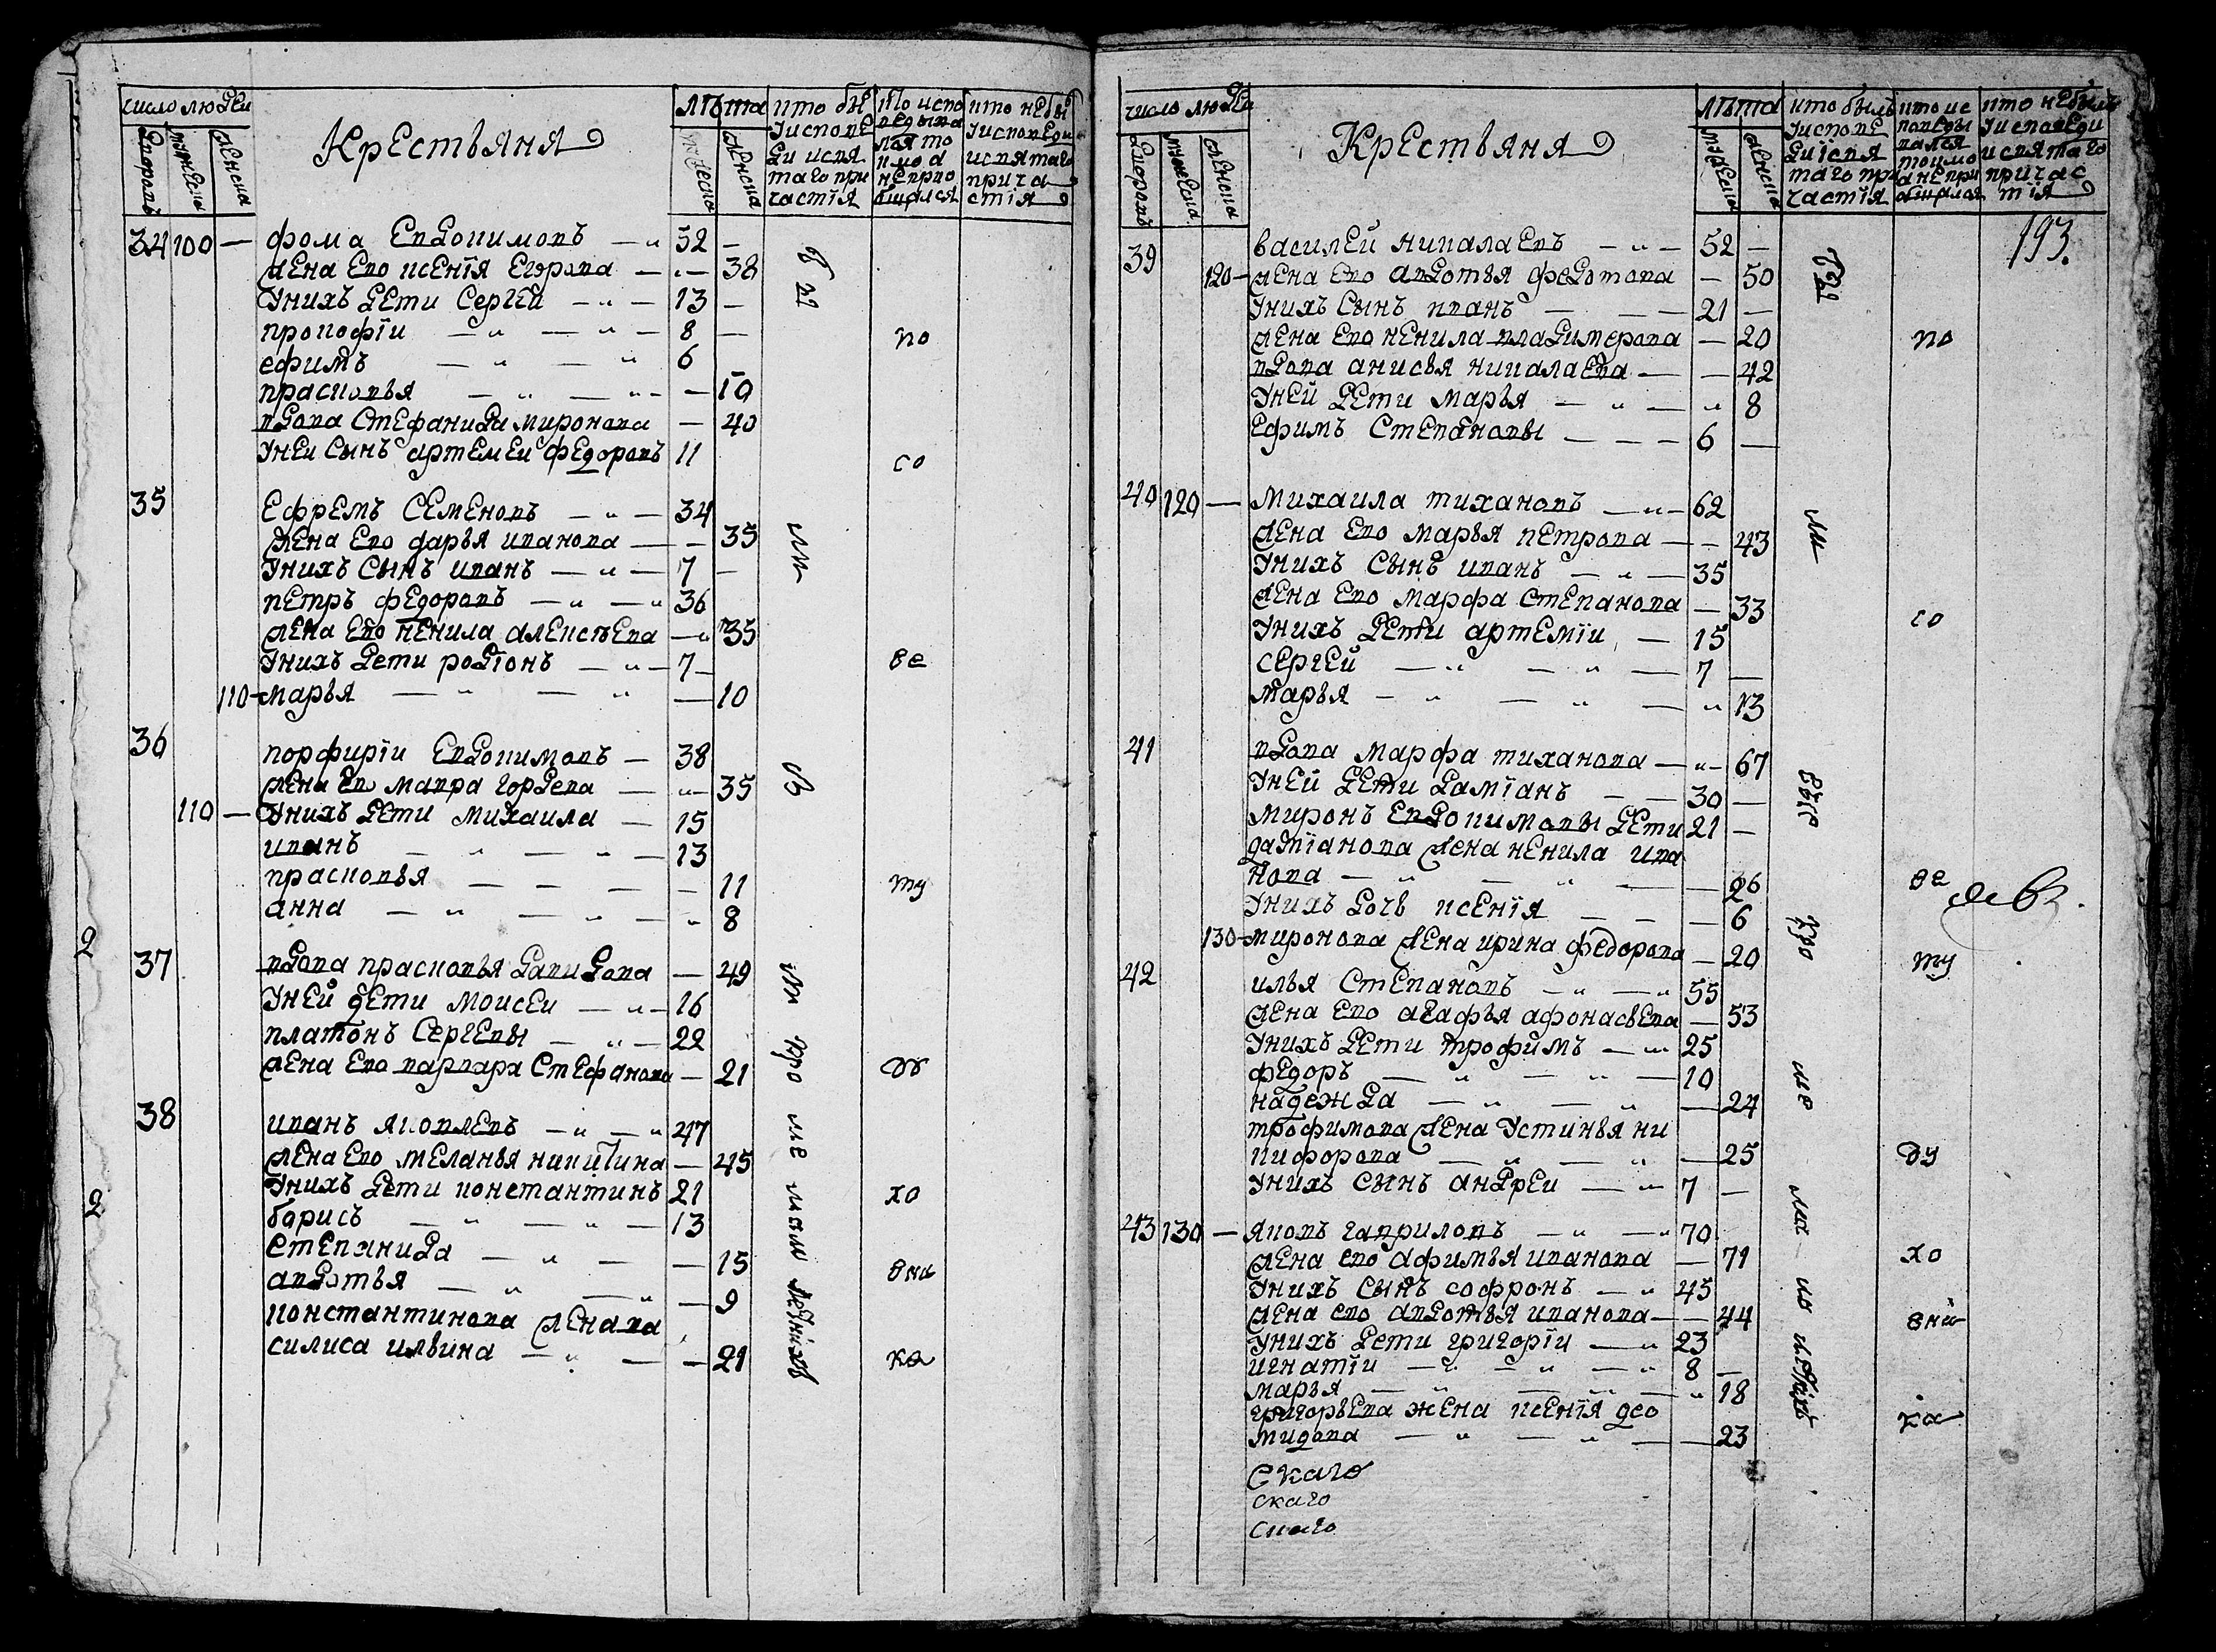 число людеи
Крестьяня
лѣта
дворовъ
мужеска
женска
мужеска
женска
кто бы
уиспове
ди исвя
таго при
частїя
кто испо
ведыва
лся то
кмо а
неприо
бщался
кто небы
уисповеди
исвятаго
прича
стїя
34 100 — фома Евдокимовъ — 52 —
жена ево ксенїя Егорова — 38
Униxъ дети Сергеи — 13 —
прокофїи — 8 —
ефимъ — 6
прасковья — 10
вдова Стефанида миронова — 40
Унеи сынъ артемеи федоровъ 11
35 Ефремъ Семеновъ — 34
жена ево дарья иванова — 35
Унихъ сынъ иванъ — 7 —
петръ федоровъ — 36
жена ево ненила алексѣева — 35
Унихъ дети родїонъ — 7 —
110 — марья — 10
36 порфирїи Евдокимовъ — 38
жена ев мавра гордева — 35
110 — Унихъ дети михаила — 15
иванъ — 13
прасковья — 11
анна — 8
37 вдова прасковья давидова — 49
Уней дети моисеи — 16
платонъ Сергевы — 22
жена ево варвара Стефанова — 21
38 иванъ яковлевъ — 47
жена ево меланья никитина — 45
Унихъ дети константинъ 21
барисъ — 13
степанида — 15
авдотья — 9
константинова жена ва
силиса ильвина — 21
2
2
по
со
ве
ту
ду
хо
вни
ка
число людеи
Крестьяня
лѣта
дворовъ
мужеска
женска
мужеска
женска
кто былъ
уиспове
ди їсвя
таго при
частїя
кто ис
поведы
вался
токмо
а не при
общался
кто небылъ
уисповеди
исвятаго
причас
тїя
193.
39 василей никалаевъ — 52 —
120 — жена ево авдотья федотова — 50
Унихъ сынъ иванъ — 21 —
жена ево ненила владимерова — 20
вдова анисья никалаева — 42
Уней дети марья — 8
Ефимъ Степановы — 6 —
40 120 — Михаила тихановъ — 62
жена ево марья петрова — 43
Унихъ сынъ иванъ — 35
жена ево марфа степанова — 33
Унихъ дети артемїи — 15
сергей — 7 —
марья — 13
41 вдова марфа тиханова — 67
Уней дети дамїанъ — 30 —
миронъ евдокимовы дети 21 —
дамїанова жена ненила ива
нова — 26
Унихъ дочь ксенїя — 6
130 — миронова жена ирина федорова — 20
42 илья Степановъ — 55
жена ево агафья афонасьева — 53
Унихъ дети трофимъ — 25
федоръ — 10
надежда — 24
трофимова жена Устинья ни
кифорова — 25
Унихъ сынъ андреи — 7 —
43 130 — яковъ гавриловъ — 70
жена ево афимья иванова — 71
Унихъ сынъ софронъ — 45
жена ево авдотья иванова — 44
Унихъ дети григорїи — 23
игнатїи — 8 —
марья — 18
григорьева жена ксенїя део
мидова — 23
скаго
скаго
скаго
по
со
ве
ту
ду
хо
вни
ка